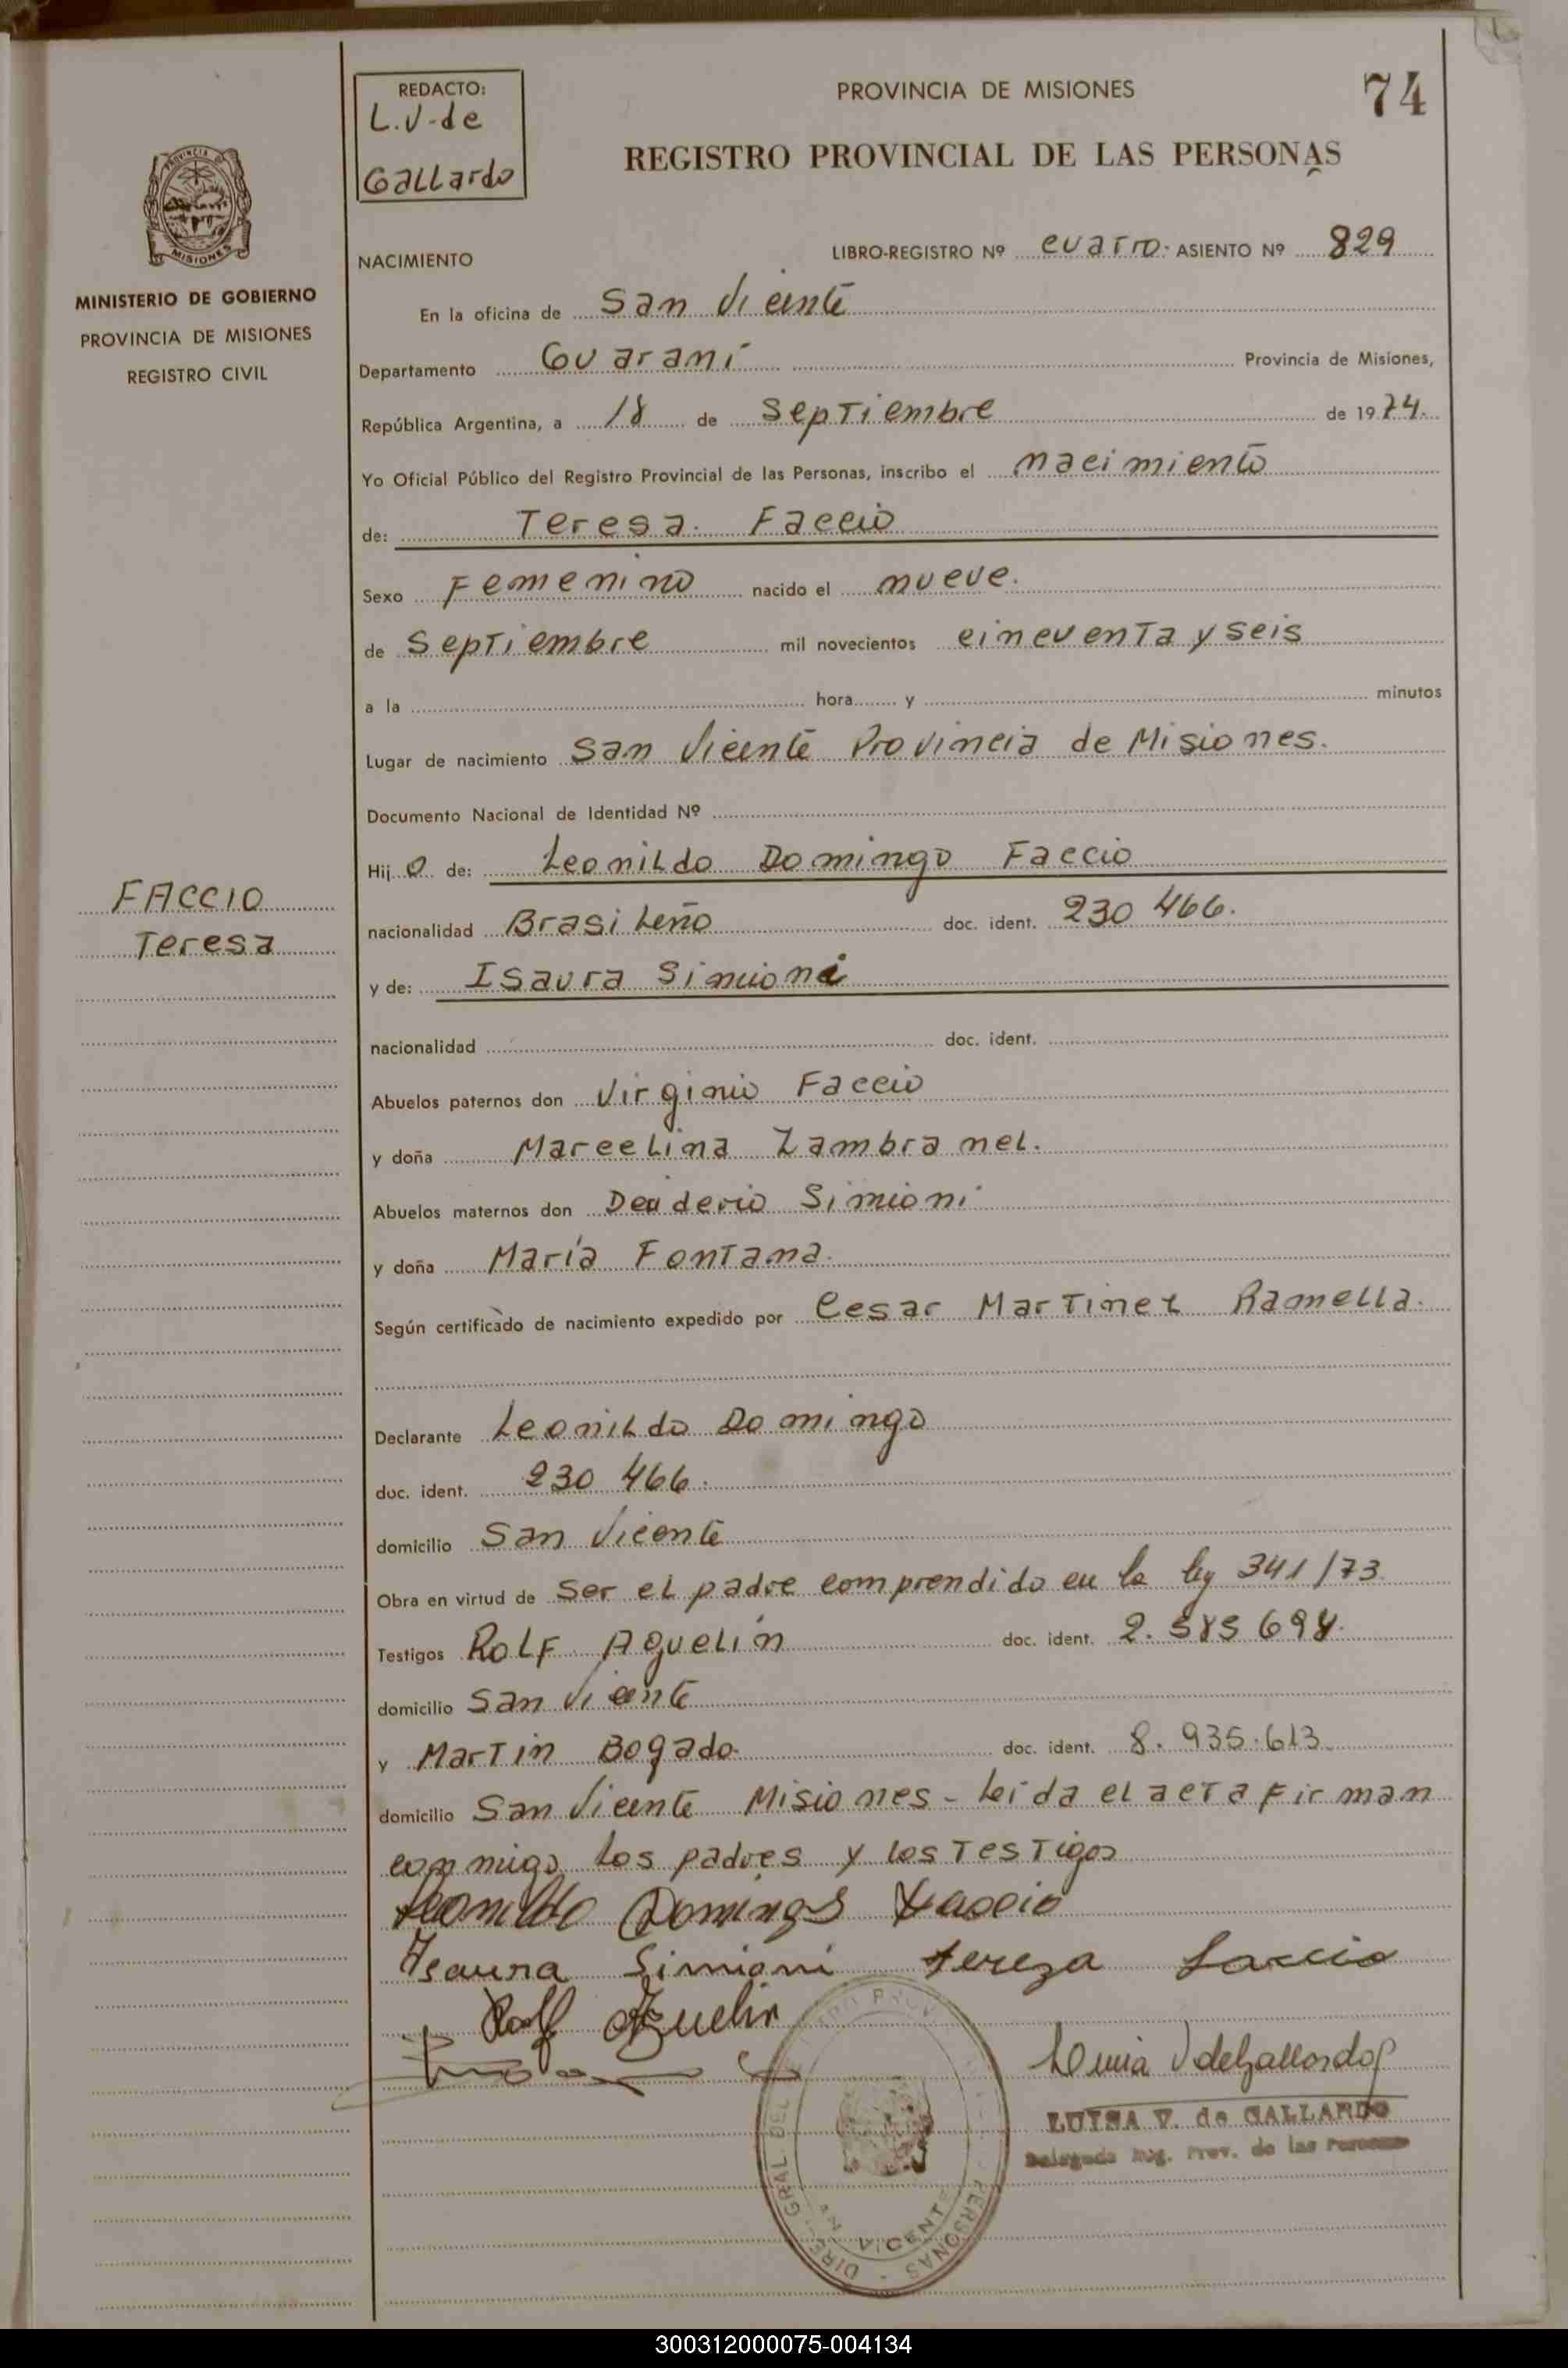 REDACTO:
L.V. de
Gallardo
PROVINCIA DE MISIONES
74
REGISTRO PROVINCIAL DE LAS PERSONAS
PROVINCIA DE
MISIONES
MINISTERIO DE GOBIERNO
PROVINCIA DE MISIONES
REGISTRO CIVIL
NACIMIENTO
LIBRO-REGISTRO Nº cuatro. ASIENTO Nº 829
En la oficina de San Vicente
Departamento Guaraní Provincia de Misiones,
República Argentina, a 18 de Septiembre de 1974.
Yo Oficial Público del Registro Provincial de las Personas, inscribo el nacimiento
de: Teresa Faccio
Sexo Femenino nacido el nueve.
de Septiembre mil novecientos cincuenta y seis
a la hora y minutos
Lugar de nacimiento San Vicente Provincia de Misiones.
Documento Nacional de Identidad Nº
Hij o de: Leonildo Domingo Faccio
FACCIO
Teresa
nacionalidad Brasileño doc. ident. 230 466.
y de: Isaura Simioni
nacionalidad doc. ident.
Abuelos paternos don Virginio Faccio
y doña Marcelina Zambranel.
Abuelos maternos don Simioni
y doña María Fontana.
Según certificado de nacimiento expedido por Cesar Martinez Ramella.
Declarante Leonildo Domingo
doc. ident. 230 466.
domicilio San Vicente
Obra en virtud de Ser el padre comprendido en la ley 341/73
Testigos Rolf Aguelín doc. ident. 2.585 698.
domicilio San Vicente
y Martin Bogado. doc. ident. 8.935.613.
domicilio San Vicente Misiones - Leída el acta firman
conmigo los padres y los Testigos
Leonildo Domingo Faccio
Isaura Simioni Tereza Faccio
Rolf
Luisa V de Gallardo
LUISA V. de GALLARDO
Delegada Reg. Prov. de las Personas
VICENTE
PERSONAS
300312000075-004134